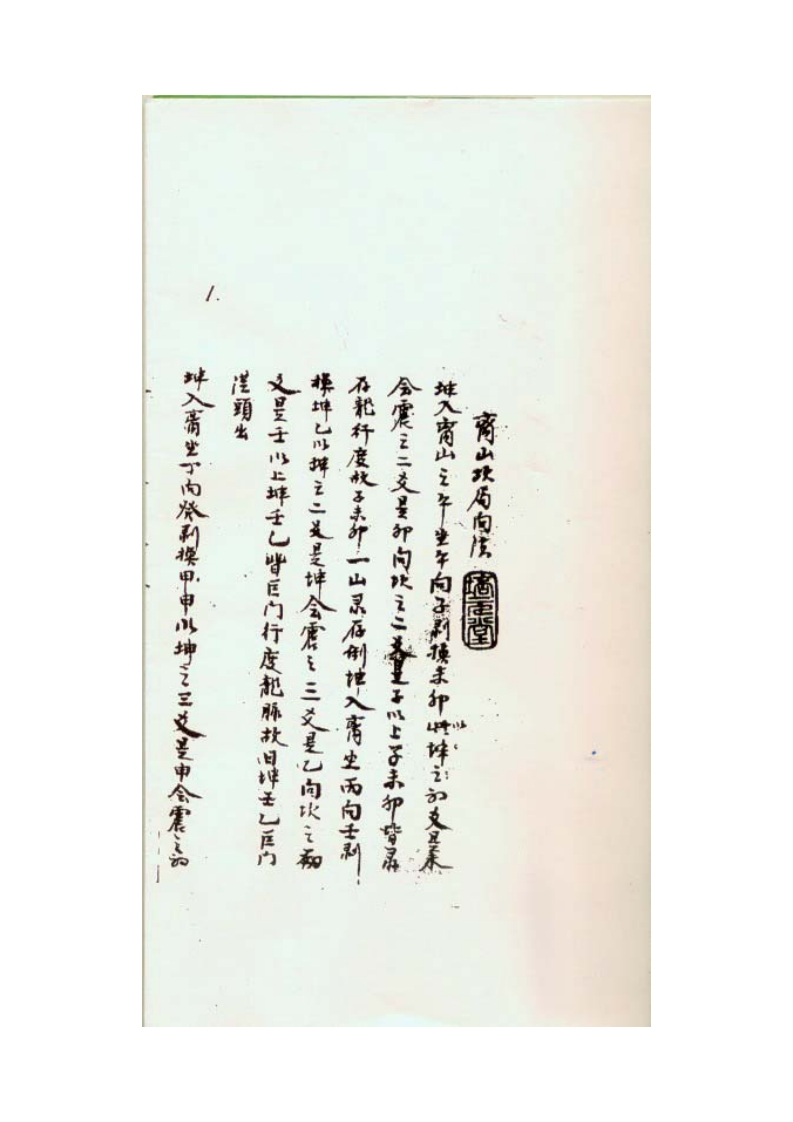 离山坎局向法
坤入离山之午坐午向子剥换未卯 以坤之初爻是未
会震之二爻是卯向坎之二爻是子以上子未卯皆录
存龍行度故子未卯一山录存倒坤入离坐丙向壬剥
换坤乙以坤之二爻是坤会震之三爻是乙向坎之初
爻是壬以上坤壬乙皆巨门行度龍脉故曰坤壬乙巨门
從頭出
坤入离坐丁向癸剥换甲申以坤之三爻是申会震之初
1.